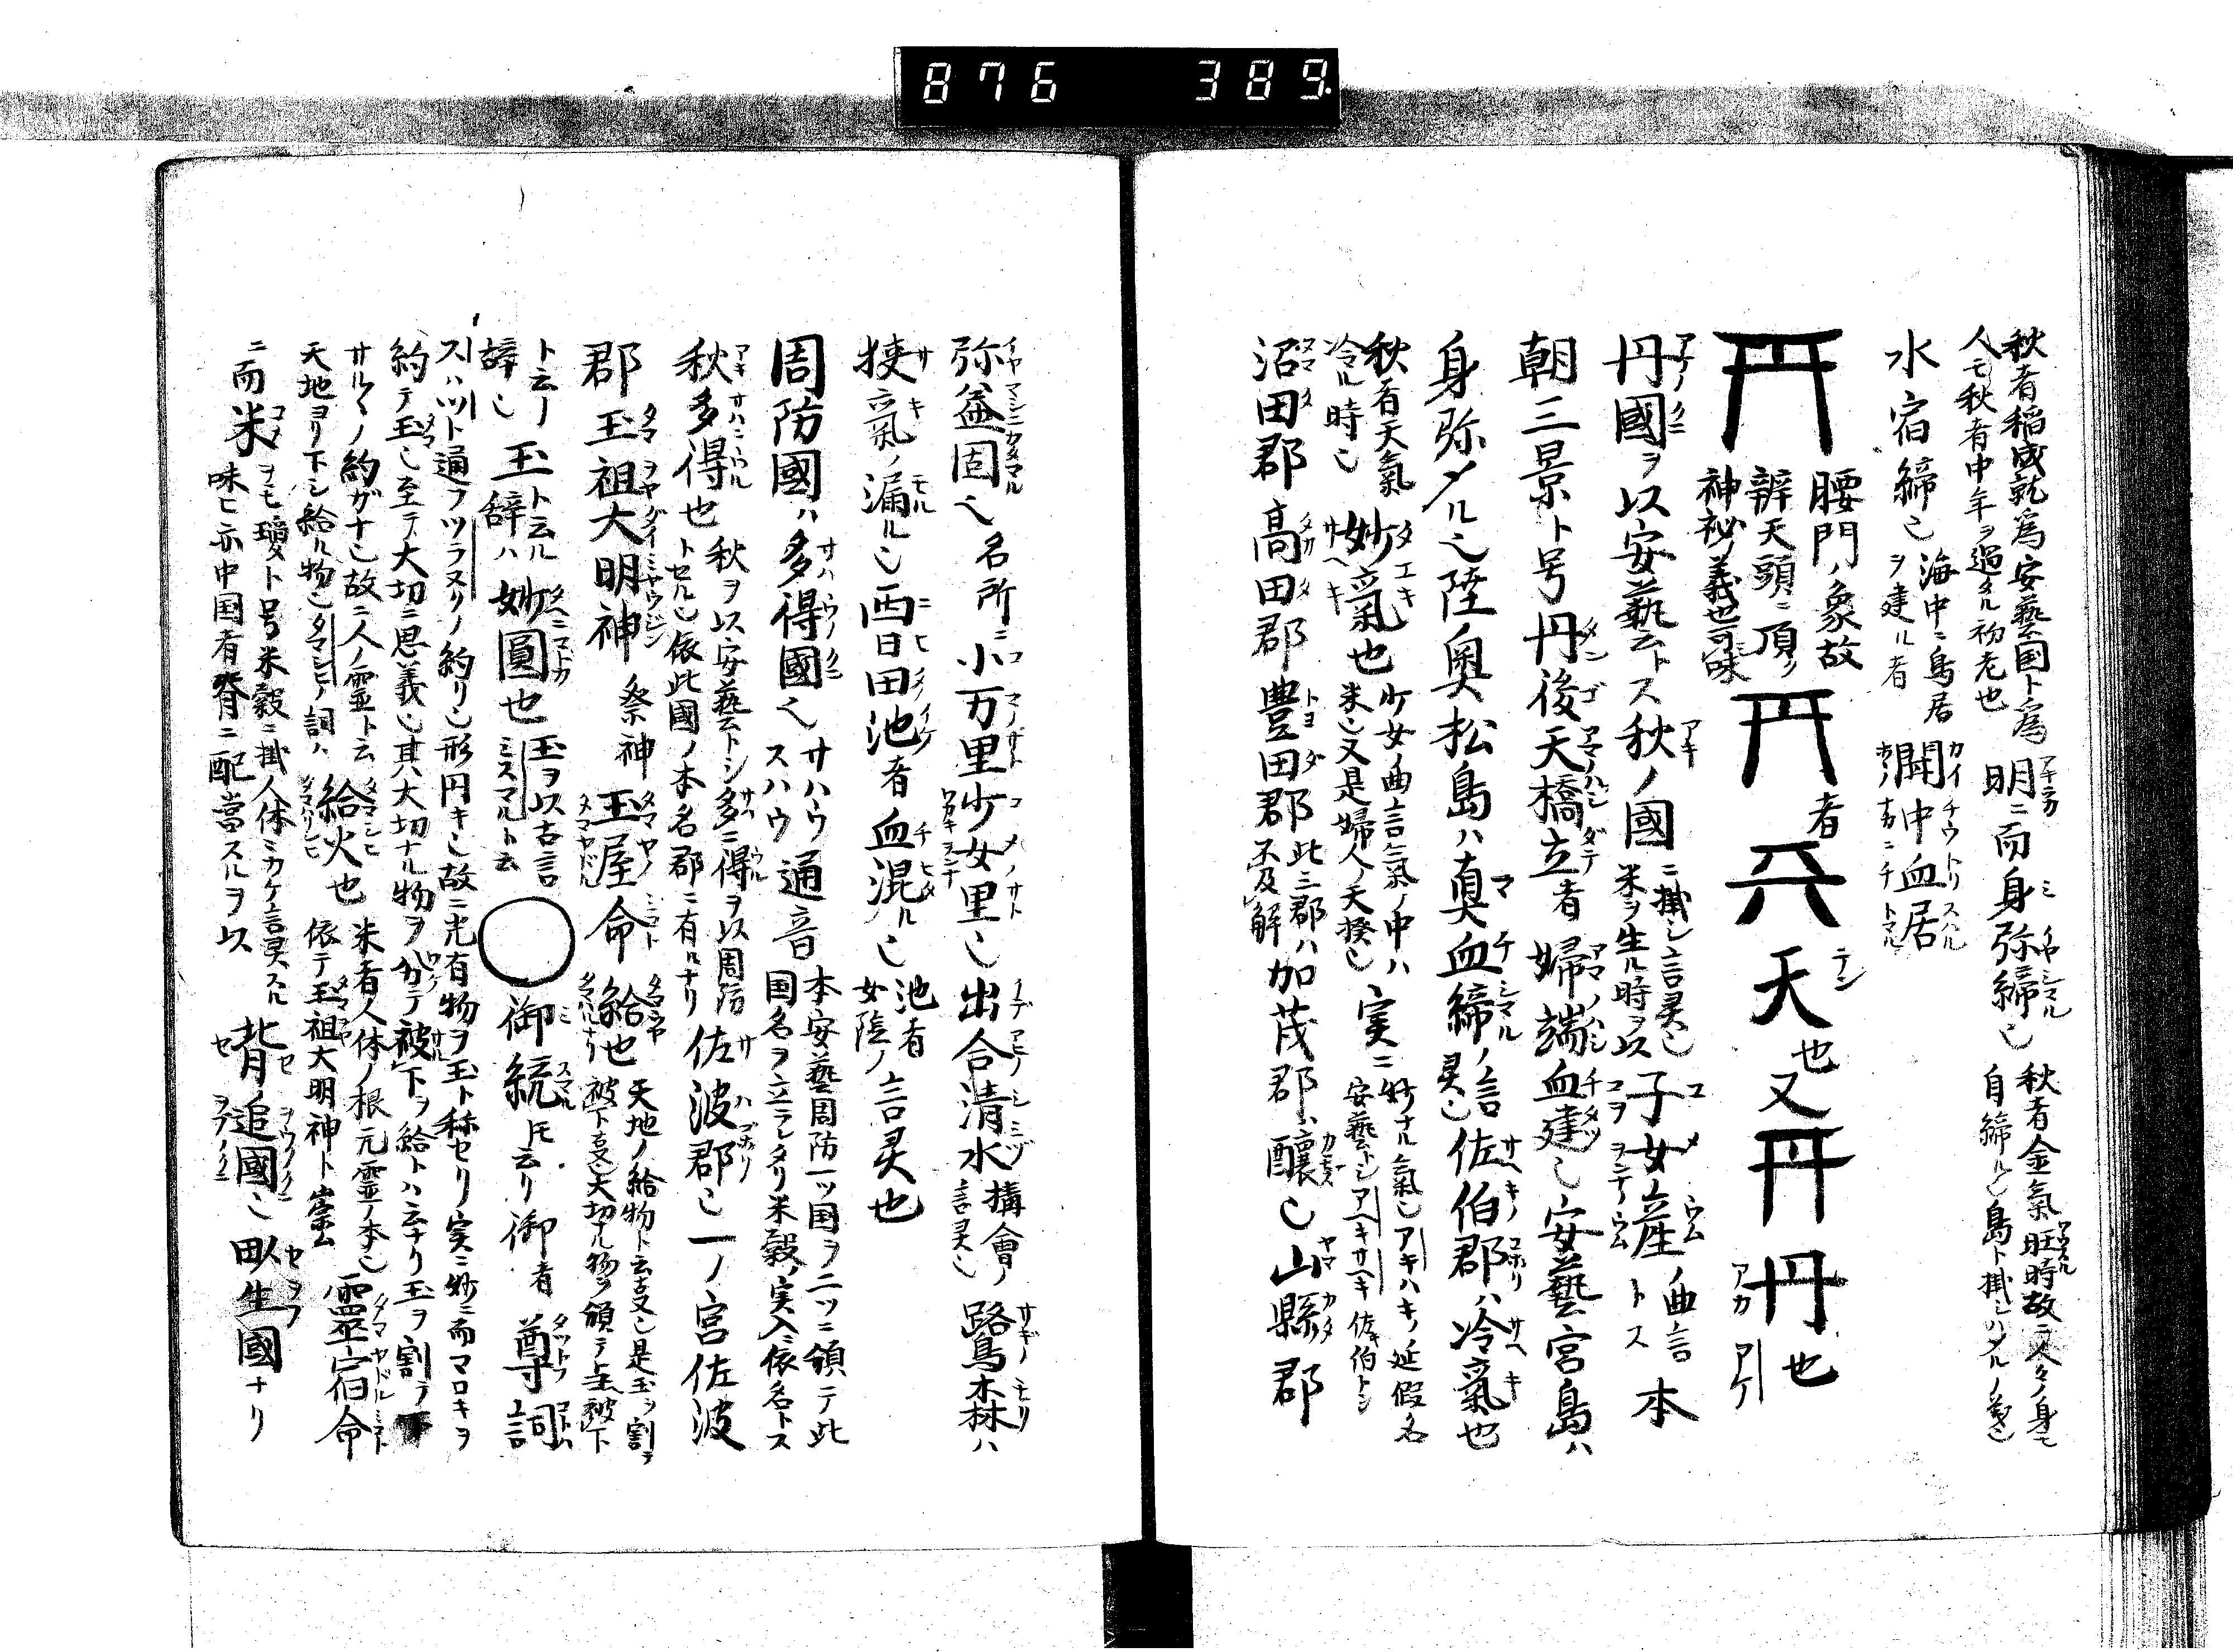 876 389
秋者稲成就為安藝国ト為
人モ秋者中年ヲ過タル初老也
明ニ而身弥締也
秋者金氣旺時故ニ人々ノ身モ
自締ル也島ト掛シハメルノ義也
水宿締也
海中ニ鳥居
ヲ建ル者
開中血居
腰門ノ象故
辨天頭ニ頂ク
神祕ノ義也可味
者
天也又
丹也
丹國ヲ以安藝トス秋ノ國
ニ掛シ言灵也
米ヲ生ル時ヲ以
子女産
ノ曲言
トス
本
朝三景ト号丹後天橋立者婦端血建也安藝宮島ハ
身弥〆ル也陸奥松島ハ真血締ノ言
灵也
佐伯郡ハ冷氣也
秋者天氣
冷ル時也
妙氣也
少女曲言氣ノ中ハ
米也又是婦人ノ天揆也
実ニ
妙ナル氣也アキハキノ延假名
安藝トシアヘキサヘキ佐伯トシ
沼田郡高田郡豊田郡
此三郡ハ
不及解
加茂郡ハ醸也山縣郡
弥益固也名所ニ小万里少女里也出合清水
構會ノ
言灵也
鷺森ハ
挟氣ノ漏ル也酉日田池者血混ル也
池者
女陰ノ
言灵也
周防國ハ多得國也
サハウ
スハウ
通音
本安藝周防一ツ国ヲ二ツニ領テ此
国名ヲ立ラレタリ米穀ノ実入ニ依名トス
秋多得也
秋ヲ以安藝トシ多ニ得ヲ以周防
トセル也依此國ノ本名郡ニ有ルナリ
佐波郡也一ノ宮佐波
郡玉祖大明神祭神玉屋命
給也
天地ノ給物ト云支也是玉ヲ割テ
被下支也大切ナル物ヲ領テ玉被下
ト云フ
辞也
玉辞ハ妙圓也
玉ヲ以古言
ミスマルト云
御統トモ云リ御者尊詞
スハツト通フツラヌリノ約リ也形円キ也故ニ光有物ヲ玉ト称セリ実ニ妙ニ而マロキヲ
約テ玉也至テ大切ニ思義也其大切ナル物ヲ分テ被下ヲ給トハ云ナリ玉ヲ割テ
サルヽノ約ガナ也故ニ人ノ霊ト云
天地ヨリ下シ給ル物也タマシヒノ詞ハ
給火也
米者人体ノ根元霊ノ本也
依テ玉祖大明神ト崇ム
霊宿命
ニ而米
ヲモ瓊ト号米穀ニ掛人体ニカケ言灵スル
味ヒ亦中国者脊ニ配當スルヲ以
背追國也畝生國ナリ